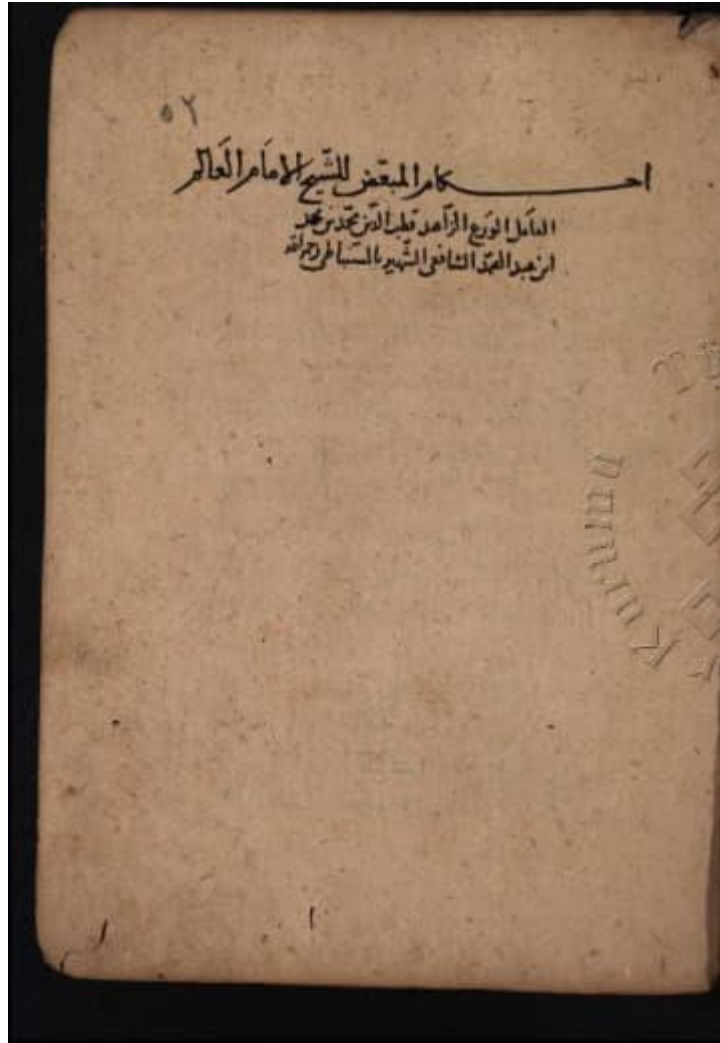 ٥٢
احكام المبعض للشيخ الامام العالم
العامل الورع الزاهد قطب الدين محمد بن محمد
ابن عبد الصمد الشافعي الشهير بالسنباطي رحمه الله
Kurumu